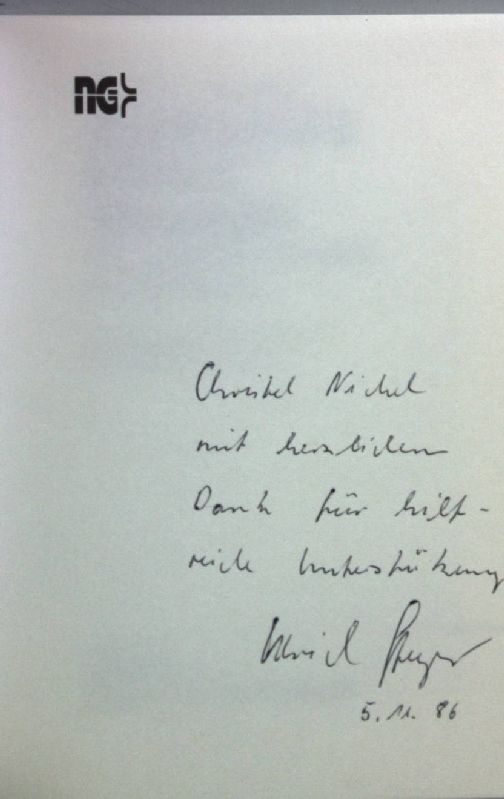 NG
Christel Nickel
mit herzlichem
Dank für hilf-
reiche Unterstützung
Ulrich Steger
5. 11. 86